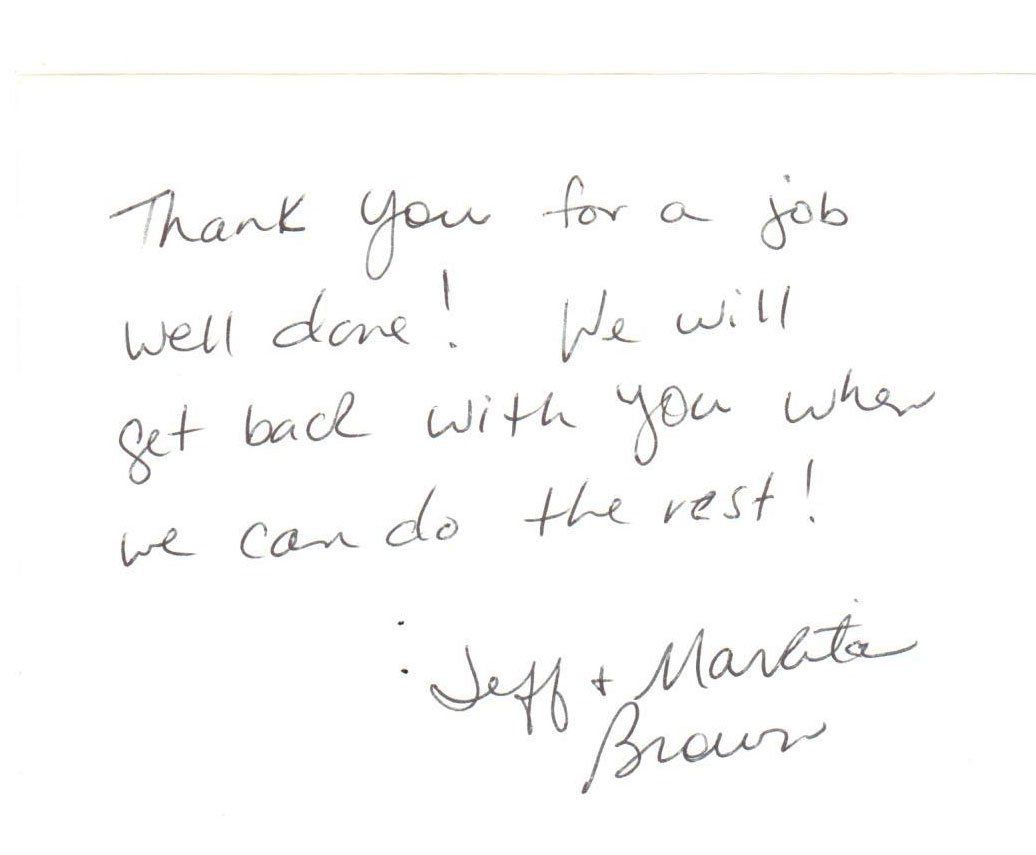 Thank you for a job
well done! We will
get back with you when
we can do the rest!
Jeff + Marlita
Brown